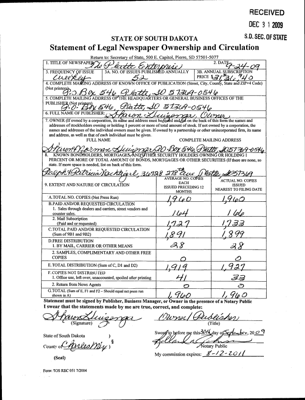 RECEIVED
DEC 31 2009
S.D. SEC. OF STATE
STATE OF SOUTH DAKOTA
Statement of Legal Newspaper Ownership and Circulation
Return to: Secretary of State, 500 E. Capitol, Pierre, SD 57501-5077
1. TITLE OF NEWSPAPER The Platte Enterprise
2. DATE 9-24-09
3. FREQUENCY OF ISSUE Weekly
3A. NO. OF ISSUES PUBLISHED ANNUALLY 52
3B. ANNUAL SUBSCRIPTION PRICE
4. COMPLETE MAILING ADDRESS OF KNOWN OFFICE OF PUBLICATION (Street, City, County, State and ZIP+4 Code) (Not printers)
P.O. Box 546, Platte, SD 57369-0546
5. COMPLETE MAILING ADDRESS OF THE HEADQUARTERS OF GENERAL BUSINESS OFFICES OF THE PUBLISHER (Not printer)
P.O. Box 546, Platte, SD 57369-0546
6. FULL NAME OF PUBLISHER: Sharon Huizenga, Owner
7. OWNER (If owned by a corporation, its name and address must be stated and also immediately thereunder the names and addresses of stockholders owning or holding 1 percent or more of total amount of stock. If not owned by a corporation, the names and addresses of the individual owners must be given. If owned by a partnership or other unincorporated firm, its name and address, as well as that of each individual must be given.
FULL NAME COMPLETE MAILING ADDRESS
Sharon Huizenga PO Box 546 Platte, SD 57369-0546
8. KNOWN BONDHOLDERS, MORTGAGEES AND OTHER SECURITY HOLDERS OWNING OR HOLDING 1 PERCENT OR MORE OF TOTAL AMOUNT OF BONDS, MORTGAGES OR OTHER SECURITIES (If there are none, so state. If more space is needed, list on back of this form.
9. EXTENT AND NATURE OF CIRCULATION
AVERAGE NO. COPIES EACH ISSUED PRECEDING 12 MONTHS
ACTUAL NO. COPIES ISSUED NEAREST TO FILING DATE
A. TOTAL NO. COPIES (Net Press Run) 1,960 1,960
B. PAID AND/OR REQUESTED CIRCULATION
1. Sales through dealers and carriers, street vendors and counter sales. 164 166
2. Mail Subscription (Paid and/or requested) 1,727 1,733
C. TOTAL PAID AND/OR REQUESTED CIRCULATION (Sum of 9B1 and 9B2) 1,891 1,899
D. FREE DISTRIBUTION
1. BY MAIL, CARRIER OR OTHER MEANS 28 28
2. SAMPLES, COMPLIMENTARY AND OTHER FREE COPIES 0 0
E. TOTAL DISTRIBUTION (Sum of C, D1 and D2) 1,919 1,927
F. COPIES NOT DISTRIBUTED
1. Office use, left over, unaccounted, spoiled after printing 41 33
2. Return from News Agents 0 0
G. TOTAL (Sum of E, F1 and F2 - Should equal net press run shown in A) 1,960 1,960
Statement must be signed by Publisher, Business Manager, or Owner in the presence of a Notary Public
I swear that the statements made by me are true, correct, and complete:
Sharon Huizenga Owner/Publisher
(Signature) (Title)
State of South Dakota
Sworn to before me this day of September, 2009
County of Charles Mix
Notary Public
(Seal)
My commission expires: 8-12-2011